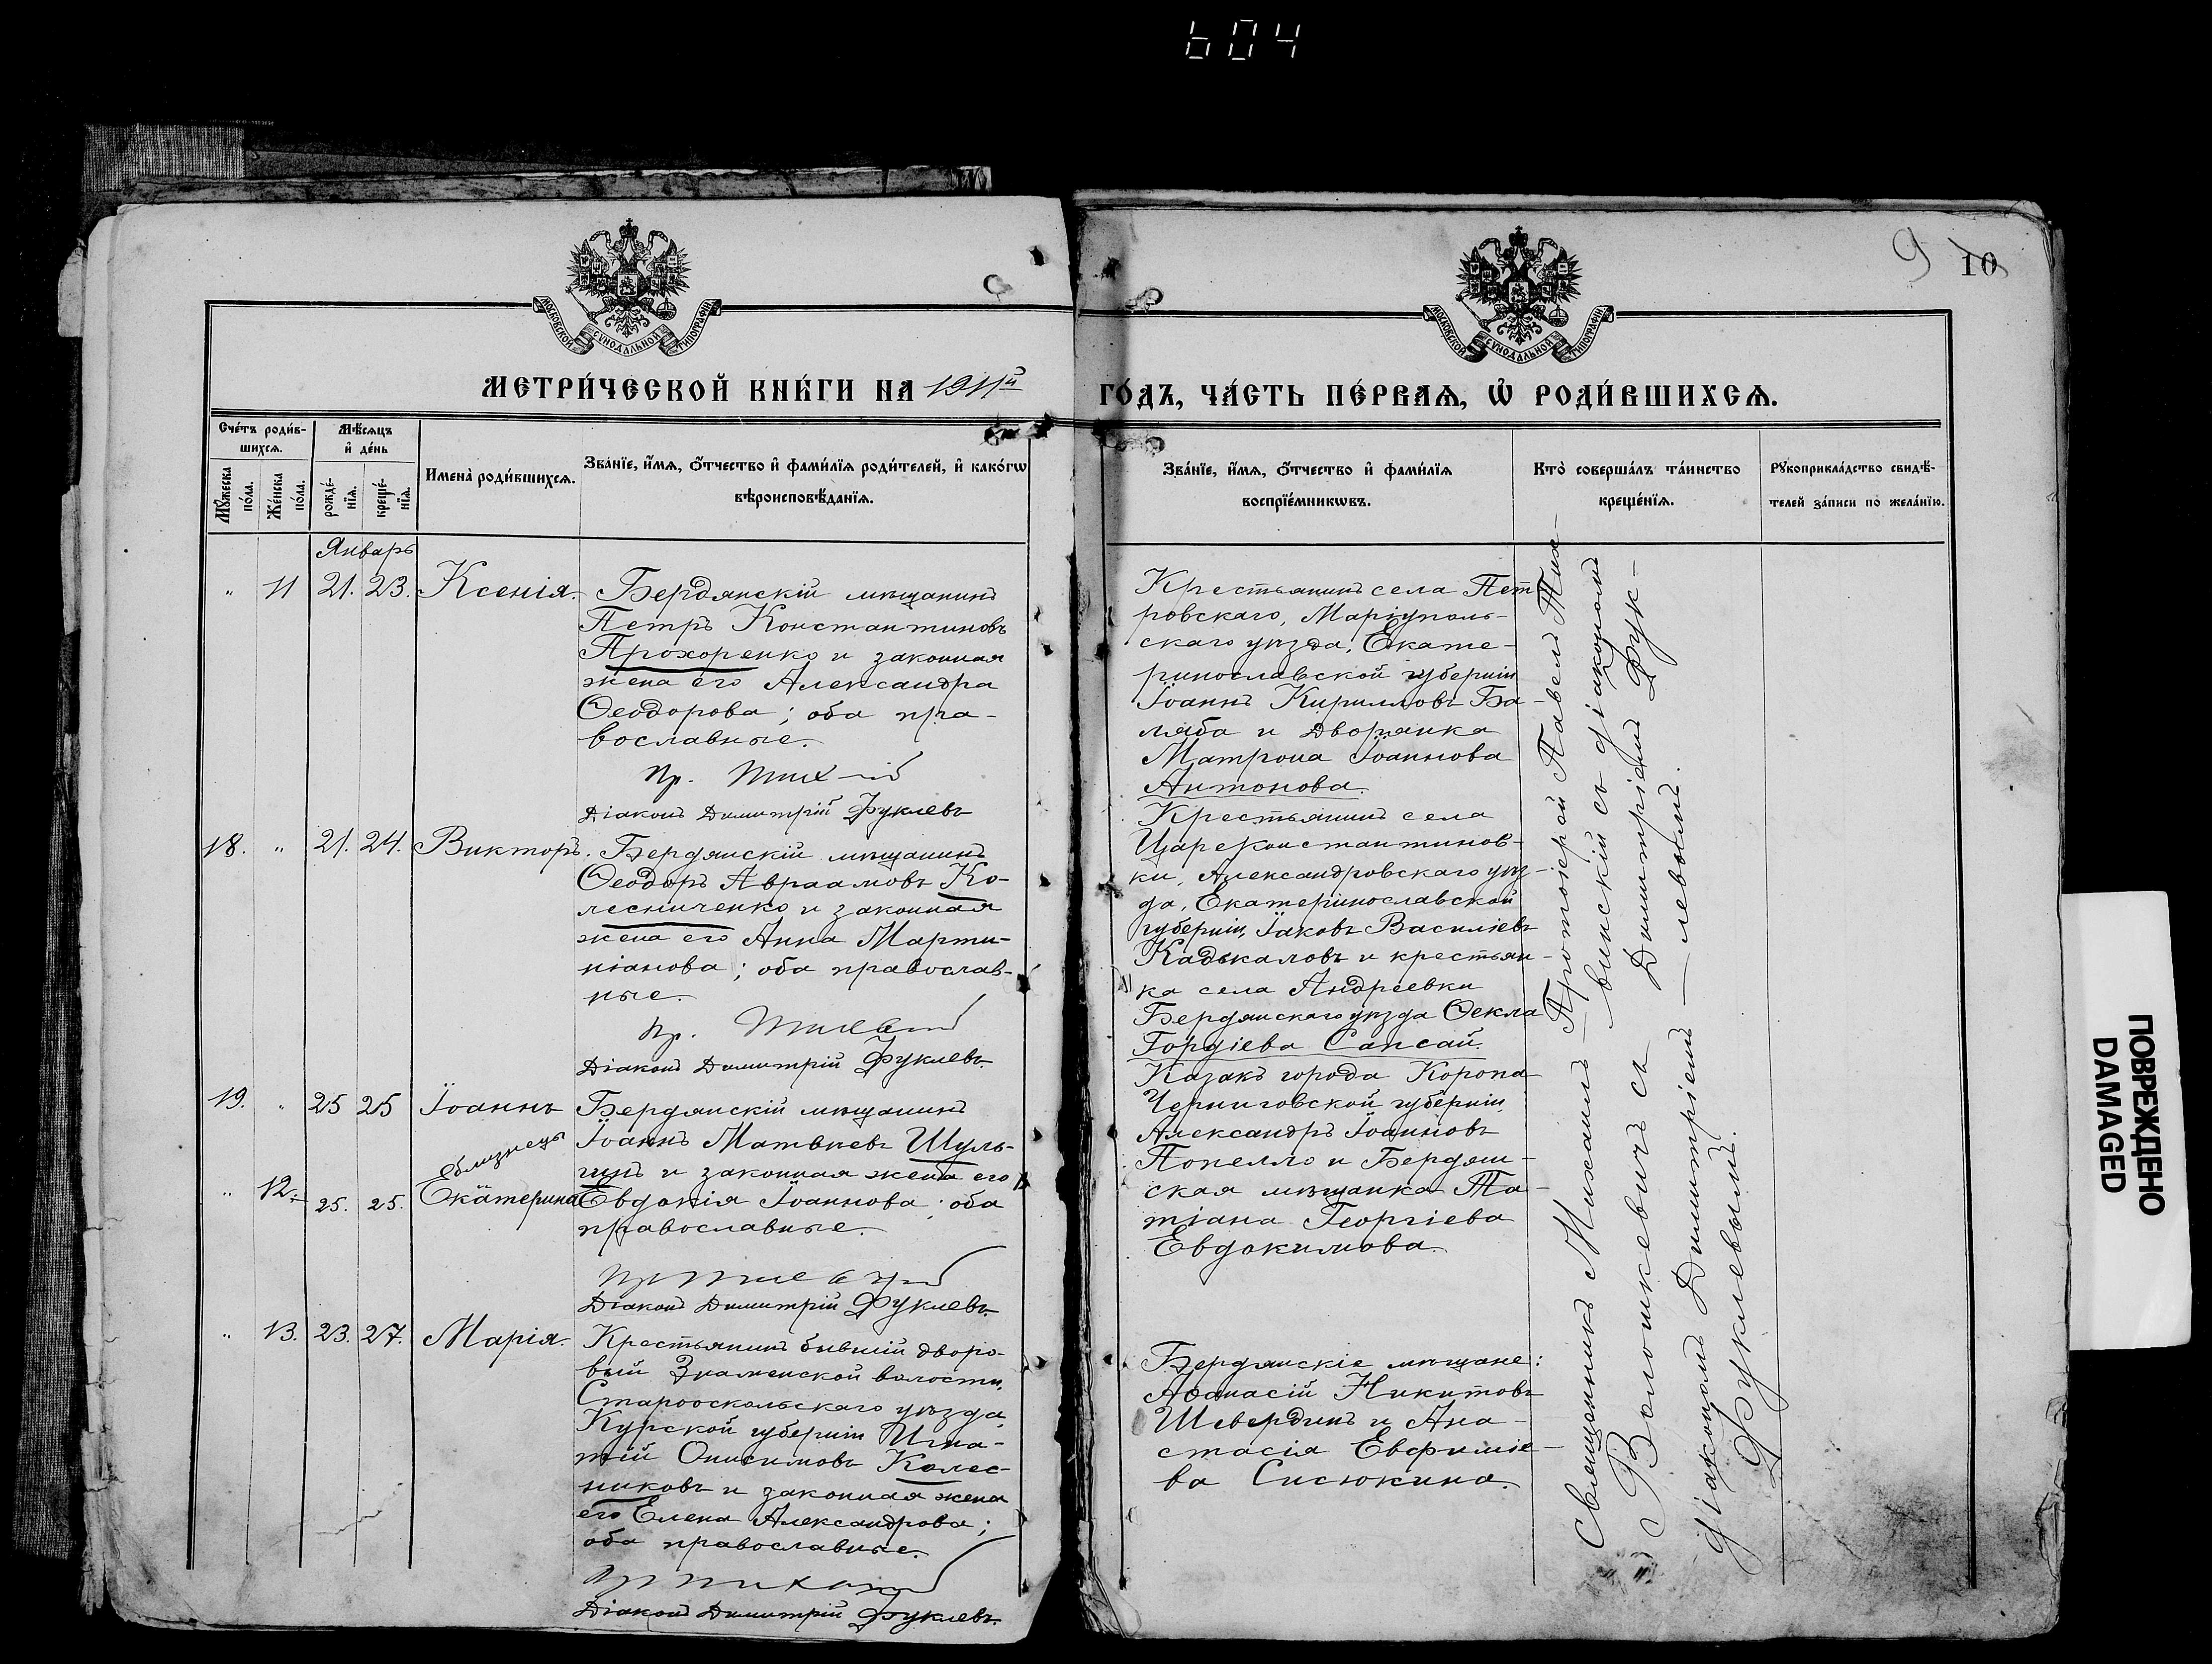 604
9 10
МОСКОВСКОЙ СѴНОДАЛЬНОЙ ТИПОГРАФІИ
МОСКОВСКОЙ СѴНОДАЛЬНОЙ ТИПОГРАФІИ
МЕТРИ́ЧЕСКОЙ КНИ́ГИ НА 1911й
ГО́ДЪ, ЧА́СТЬ ПЕ́РВАѦ, Ѡ҆ РОДИ́ВШИХСѦ.
Сче́тъ роди́в-
шихсѧ.
Мꙋ́жеска по́ла.
Же́нска по́ла.
Мѣ́сяцъ
и҆ де́нь
рожде́-
нїѧ.
креще́-
нїѧ.
Имена̀ роди́вшихсѧ.
Зва́нїе, и҆́мѧ, ѻ҆́тчество и҆ фами́лїѧ роди́телей, и҆ како́гѡ
вѣроисповѣ́данїѧ.
Зва́нїе, и҆́мѧ, ѻ҆́тчество и҆ фами́лїѧ
воспрїе́мникѡвъ.
Кто̀ соверша́лъ та́инство
креще́нїѧ.
Рꙋкоприкла́дство свидѣ́-
телей за́писи по жела́нїю.
Январь
" 11 21. 23. Ксенія.
Бердянскій мѣщанинъ
Петръ Константиновъ
Прохоренко и законная
жена его Александра
Ѳеодорова; оба пра-
вославные.
Діаконъ Димитрій Фуклевъ
Крестьянинъ села Пет
ровскаго, Маріуполь-
скаго уѣзда, Екате-
ринославской губерніи
Іоаннъ Кирилловъ Ба-
ляба и Дворянка
Матрона Іоаннова
Антонова.
18. " 21. 24. Викторъ.
Бердянскій мѣщанинъ
Ѳеодоръ Авраамовъ Ко-
лесниченко и законная
жена его Анна Марти-
ніанова; оба православ-
ные.
Діаконъ Димитрій Фуклевъ.
Крестьянинъ села
Цареконстантинов-
ки, Александровскаго уѣз-
да, Екатеринославской
губерніи, Іаковъ Василіевъ
Кадькаловъ и крестьян-
ка села Андреевки
Бердянскаго уѣзда Ѳекла
Гордіева Сапсай.
19. " 25 25 Іоаннъ
близнецы
" 12. 25. 25. Екатерина
Бердянскій мѣщанинъ
Іоаннъ Матвѣевъ Шуль-
гинъ и законная жена его
Евдокія Іоаннова; оба
православные.
Діаконъ Димитрій Фуклевъ.
Казакъ города Коропа
Черниговской губерніи
Александръ Іоанновъ
Попелло и Бердян-
ская мѣщанка Та-
тіана Георгіева
Евдокимова.
" 13. 23. 27. Марія.
Крестьянинъ бывшій дворо-
вый Знаменской волости,
Старооскольскаго уѣзда
Курской губерніи Игна-
тій Онисимовъ Колес-
никовъ и законная жена
его Елена Александрова;
оба православные.
Діаконъ Димитрій Фуклевъ.
Бердянскіе мѣщане:
Аѳанасій Никитовъ
Шевердинъ и Ана-
стасія Евфиміе-
ва Сисюкина.
Священникъ Михаилъ — Протоіерей Павелъ Тих-
Волошкевичъ съ — винскій съ діакономъ
діакономъ Димитріемъ — Димитріемъ Фук-
Фуклевымъ. — левымъ.
ПОВРЕЖДЕНО
DAMAGED